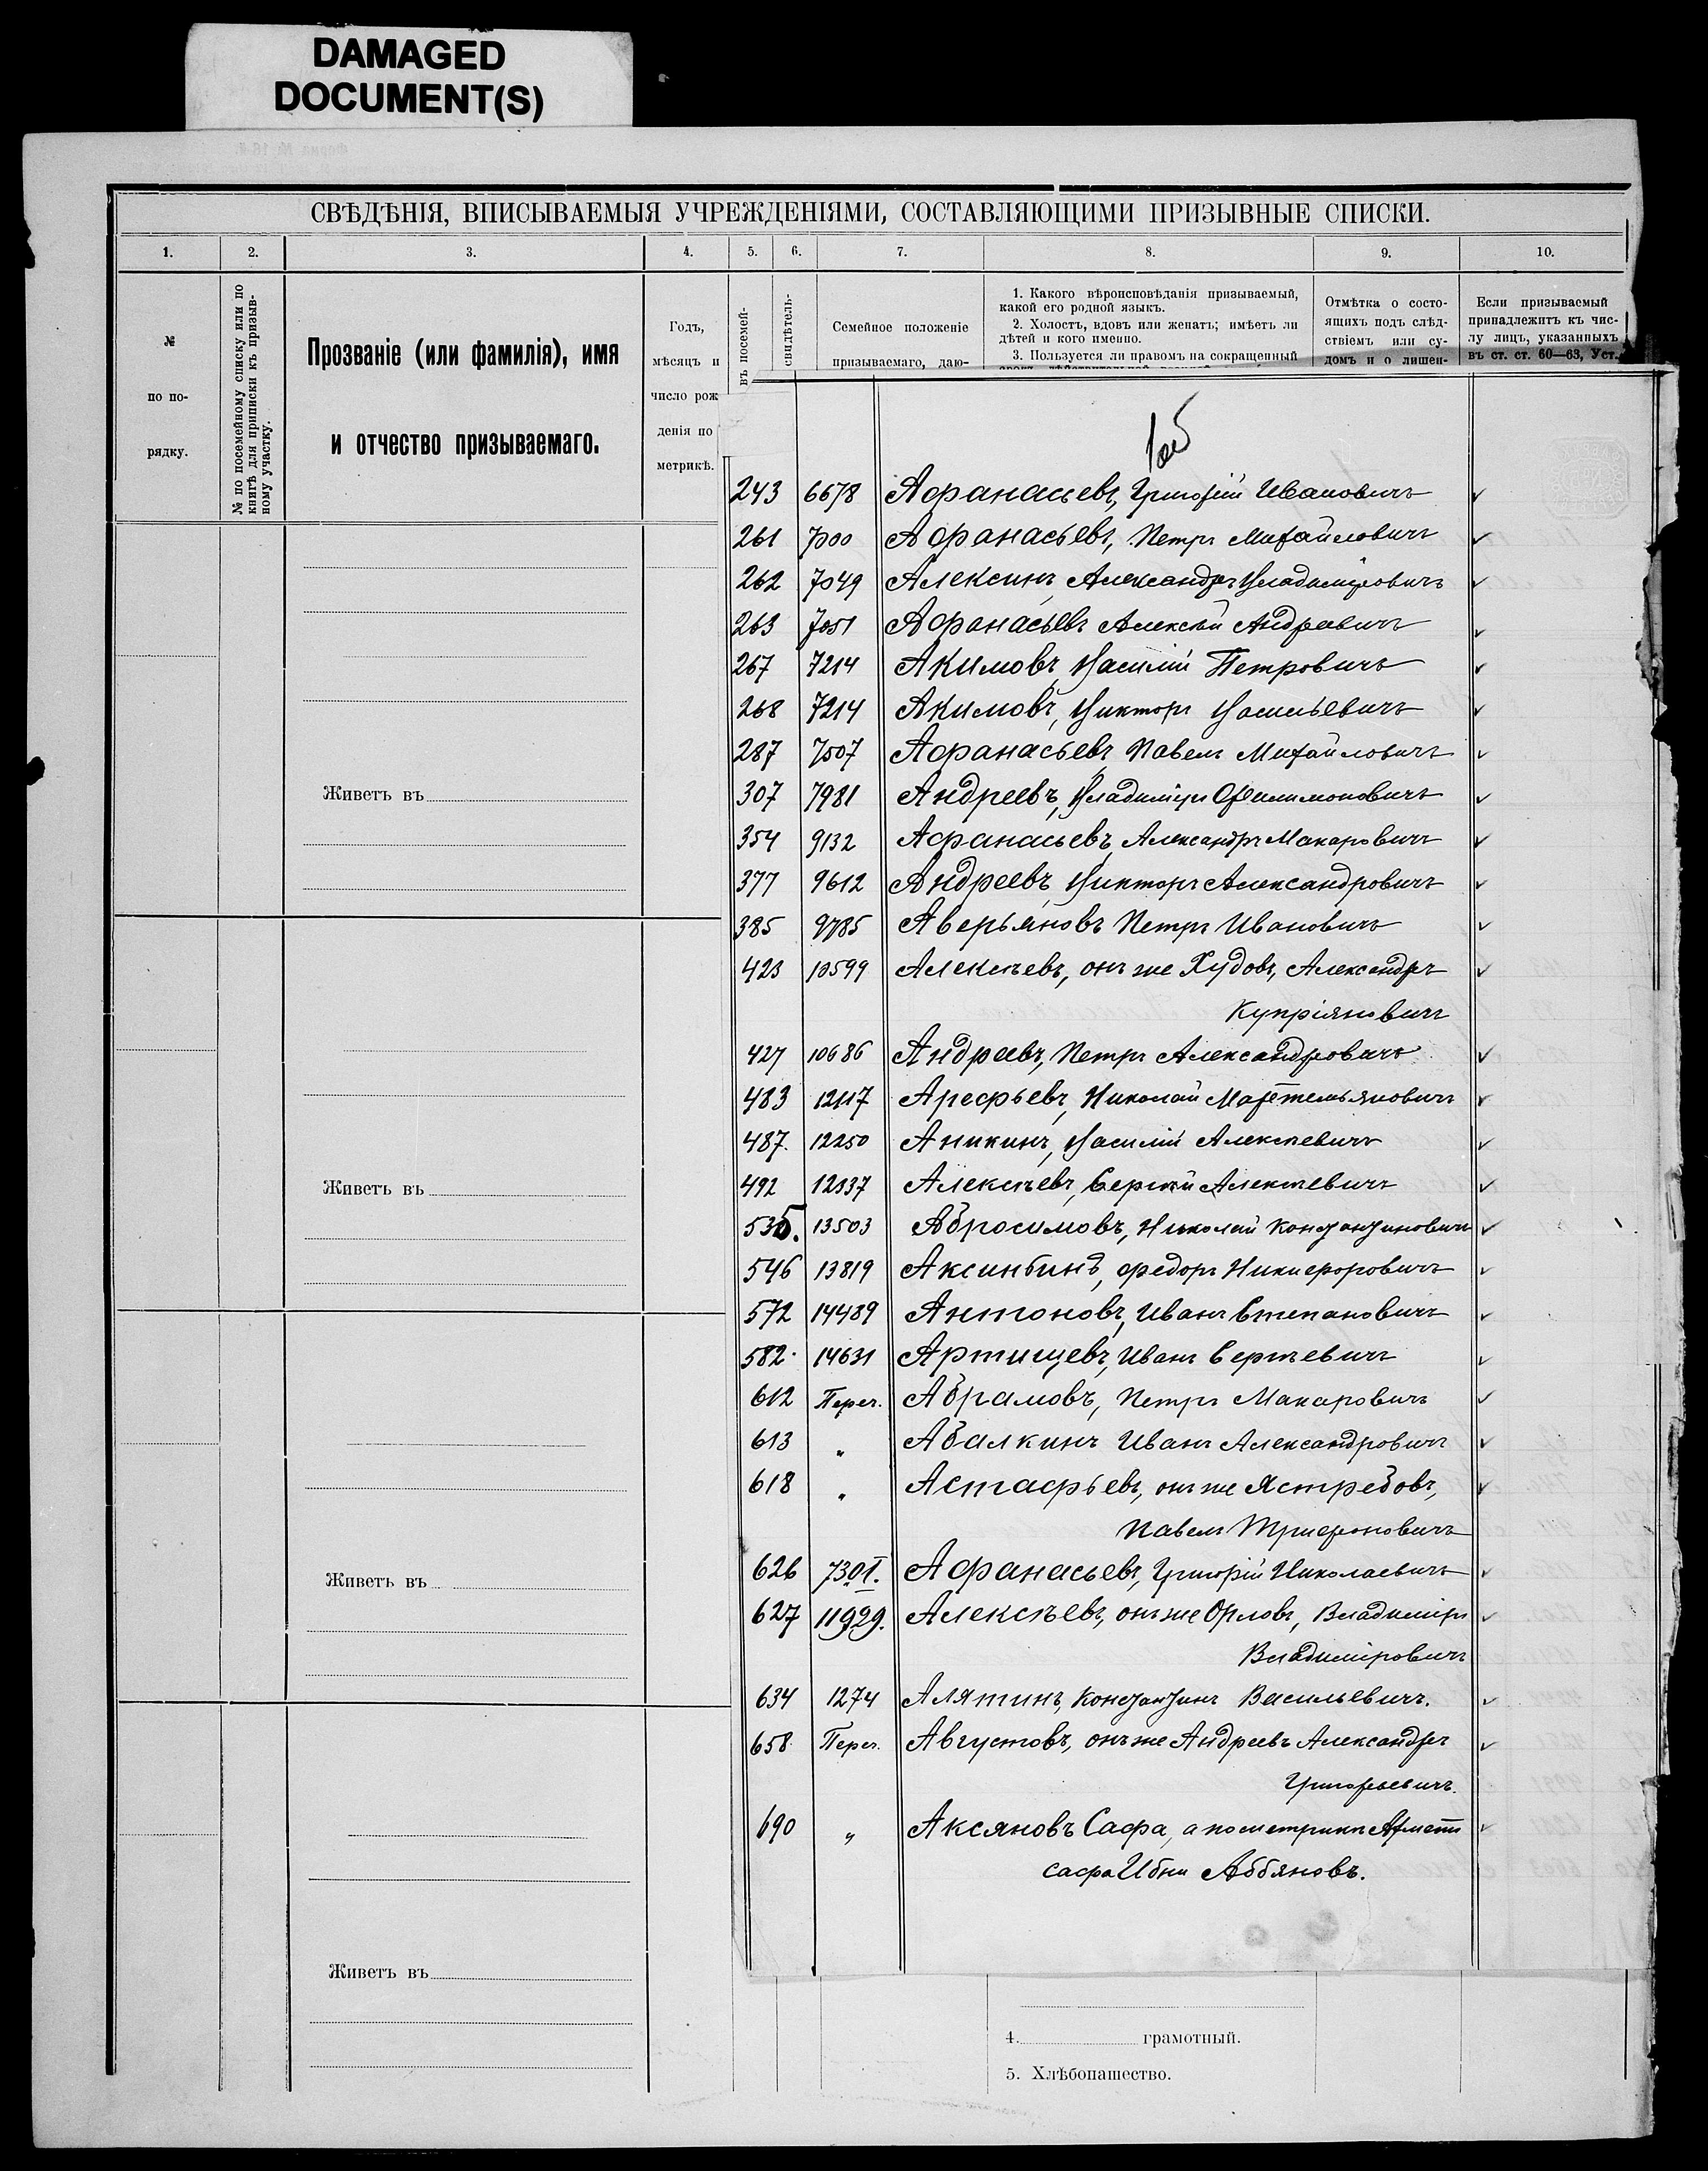 DAMAGED
DOCUMENT(S)
СВѢДѢНІЯ, ВПИСЫВАЕМЫЯ УЧРЕЖДЕНІЯМИ, СОСТАВЛЯЮЩИМИ ПРИЗЫВНЫЕ СПИСКИ.
1. 2. 3. 4. 5. 6. 7. 8. 9. 10.
№
по по-
рядку.
№ по посемейному списку или по
книгѣ для приписки къ призыв-
ному участку.
Прозваніе (или фамилія), имя
и отчество призываемаго.
Годъ,
мѣсяцъ и
число рож
денія по
метрикѣ.
въ посемей-
свидѣтель-
Семейное положеніе
призываемаго, даю-
1. Какого вѣроисповѣданія призываемый,
какой его родной языкъ.
2. Холостъ, вдовъ или женатъ; имѣетъ ли
дѣтей и кого именно.
3. Пользуется ли правомъ на сокращенный
Отмѣтка о состо-
ящихъ подъ слѣд-
ствіемъ или су-
домъ и о лишен-
Если призываемый
принадлежитъ къ чис-
лу лицъ, указанныхъ
въ ст. ст. 60—63, Уст.
243 6678 Афанасьевъ, Григорій Ивановичъ ✓
261 7000 Афанасьевъ, Петръ Михайловичъ ✓
262 7049 Алексинъ, Александръ Владиміровичъ ✓
263 7051 Афанасьевъ Алексѣй Андреевичъ ✓
267 7214 Акимовъ, Василій Петровичъ ✓
268 7214 Акимовъ, Викторъ Васильевичъ ✓
287 7507 Афанасьевъ, Павелъ Михайловичъ ✓
307 7981 Андреевъ, Владиміръ Филимоновичъ ✓
354 9132 Афанасьевъ, Александръ Макаровичъ ✓
377 9612 Андреевъ, Викторъ Александровичъ ✓
385 9785 Аверьяновъ Петръ Ивановичъ ✓
423 10599 Алексѣевъ, онъ же Худовъ, Александръ ✓
Купріяновичъ
427 10686 Андреевъ, Петръ Александровичъ ✓
483 12117 Арефьевъ, Николай Мартемьяновичъ ✓
487. 12250 Аникинъ, Василій Алексѣевичъ ✓
492 12337 Алексѣевъ, Сергѣй Алексѣевичъ ✓
535. 13503 Абросимовъ, Николай Константиновичъ ✓
546 13819 Аксинбинъ, Федоръ Никифоровичъ ✓
572 14489 Антоновъ, Иванъ Степановичъ ✓
582. 14631 Артищевъ, Иванъ Сергѣевичъ ✓
612 Переч. Абрамовъ, Петръ Макаровичъ ✓
613 " Абалкинъ Иванъ Александровичъ ✓
618 " Астафьевъ, онъ же Ястребовъ, ✓
Павелъ Трифоновичъ
626 7301. Афанасьевъ, Григорій Николаевичъ ✓
627 11929. Алексѣевъ, онъ же Орловъ, Владиміръ ✓
Владиміровичъ
634 1274 Алятинъ, Константинъ Васильевичъ. ✓
658 Переч. Августовъ, онъ же Андреевъ Александръ ✓
Григорьевичъ.
690 " Аксяновъ Сафа, а по метрикѣ Ахметъ ✓
сафа Ибни Аббяновъ.
Живетъ въ
Живетъ въ
Живетъ въ
Живетъ въ
4. грамотный.
5. Хлѣбопашество.